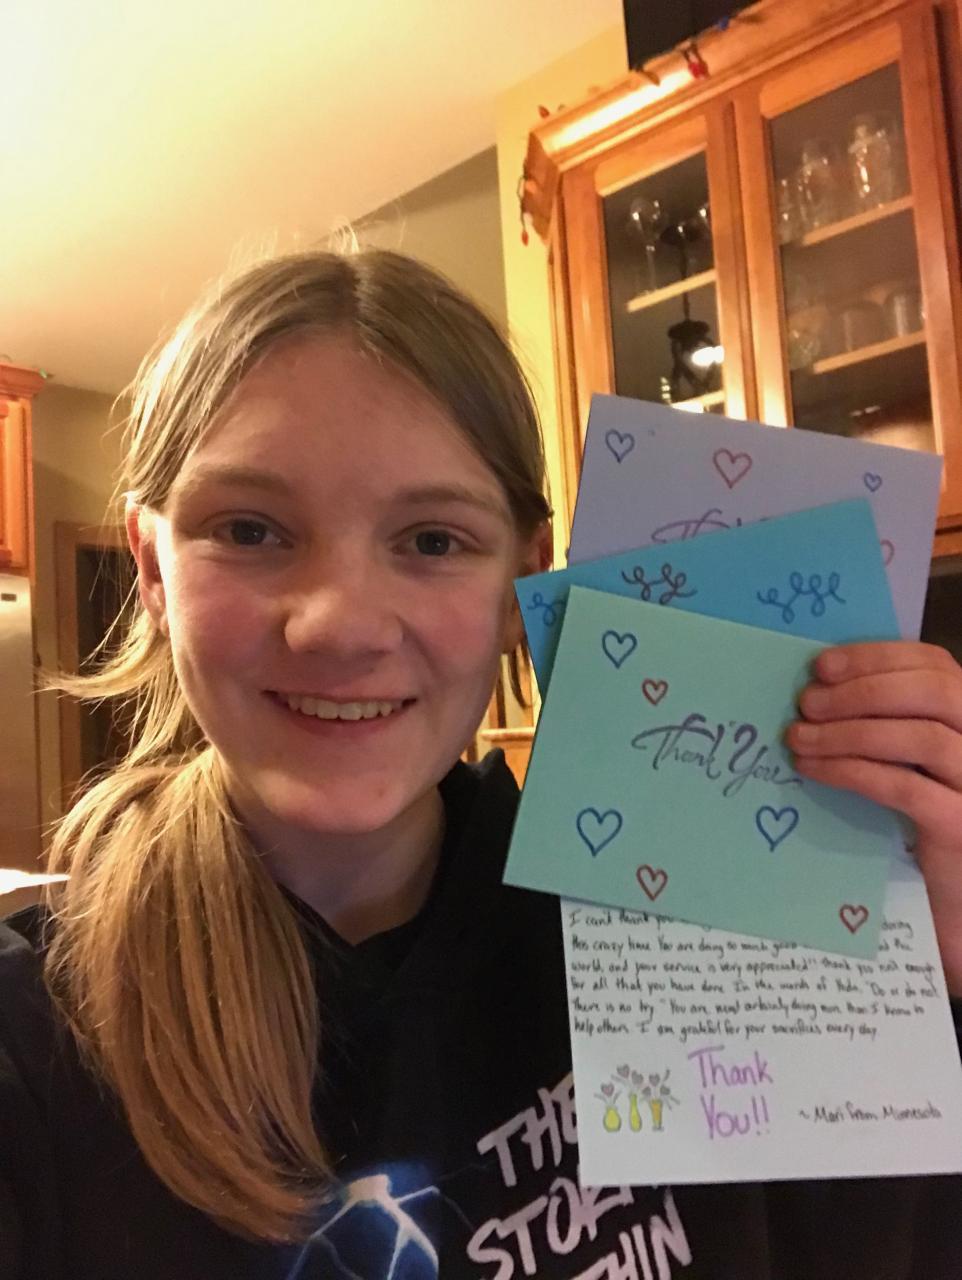 Thank You
I can't thank you during
this crazy time. You are doing so much good and the
world, and your service is very appreciated!! Thank you isn't enough
for all that you have done. In the words of Yoda, "Do or do not.
There is no try." You are most certainly doing more than I know to
help others. I am grateful for your sacrifices every day.
Thank
You!!
~ Mari from Minnesota
THE
STORM
WITHIN